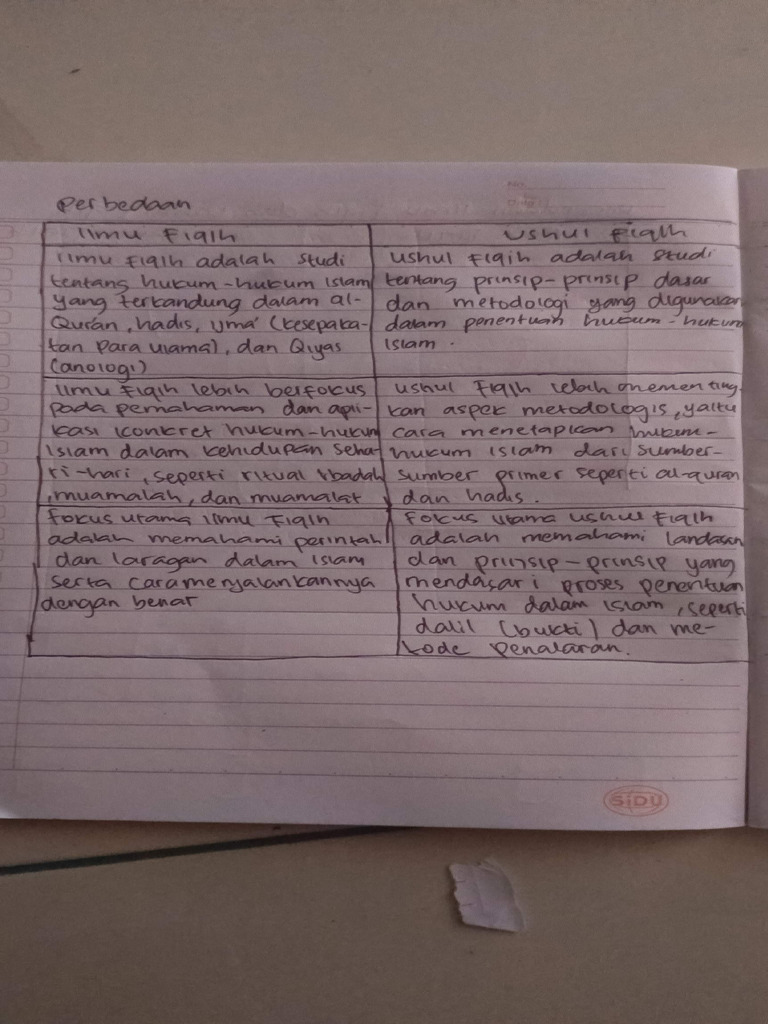 Perbedaan
Ilmu Fiqih
Ilmu Fiqih adalah studi
tentang hukum-hukum Islam
yang terkandung dalam al-
Qur'an, hadis, ijma' (kesepaka-
tan para ulama), dan Qiyas
(anologi)
Ilmu Fiqih lebih berfokus
pada pemahaman dan apli-
kasi konkret hukum-hukum
Islam dalam kehidupan seha-
ri-hari, seperti ritual ibadah
, muamalah, dan muamalat
Fokus utama Ilmu Fiqih
adalah memahami perintah
dan laragan dalam Islam
serta cara menjalankannya
dengan benar
Ushul Fiqih
Ushul Fiqih adalah studi
tentang prinsip-prinsip dasar
dan metodologi yang digunakan
dalam penentuan hukum-hukum
Islam.
Ushul Fiqih lebih mementing-
kan aspek metodologis, yaitu
cara menetapkan hukum-
hukum Islam dari sumber-
sumber primer seperti al-quran
dan hadis.
Fokus utama ushul Fiqih
adalah memahami landasan
dan prinsip-prinsip yang
mendasari proses penentuan
hukum dalam Islam, seperti
dalil (bukti) dan me-
tode penalaran.
SIDU